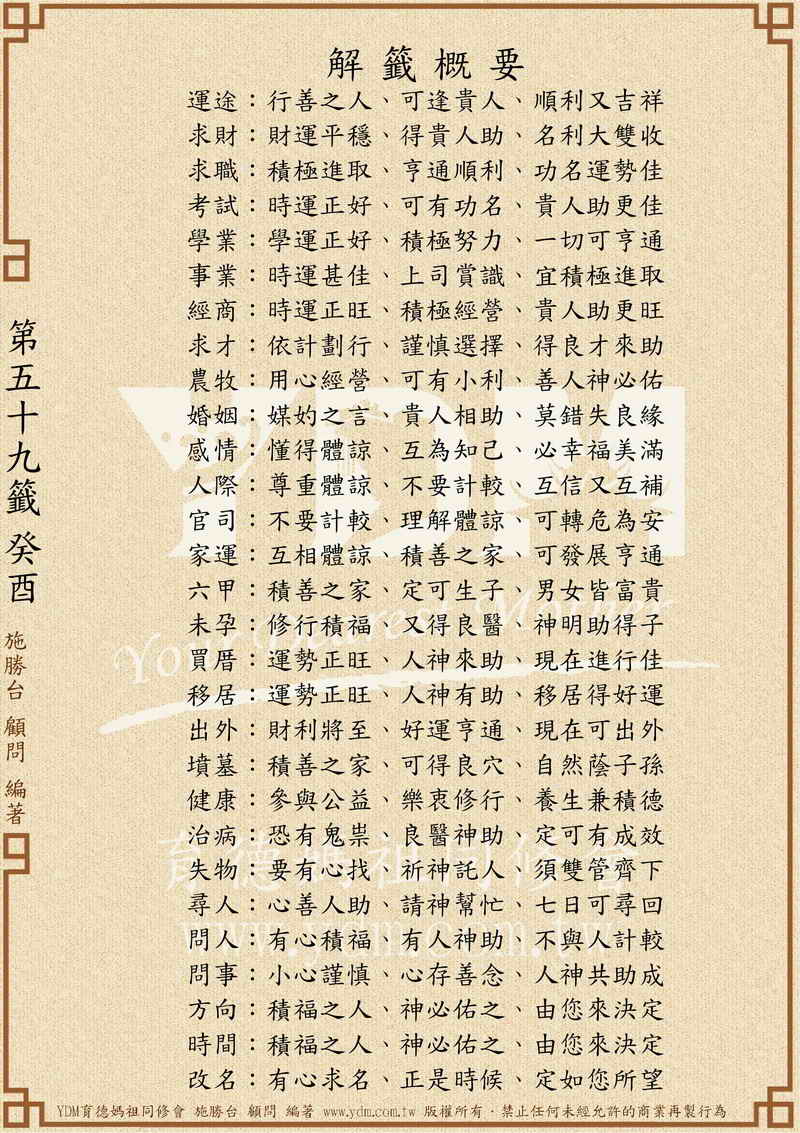 解籤概要
運途：行善之人、可逢貴人、順利又吉祥
求財：財運平穩、得貴人助、名利大雙收
求職：積極進取、亨通順利、功名運勢佳
考試：時運正好、可有功名、貴人助更佳
學業：學運正好、積極努力、一切可亨通
事業：時運甚佳、上司賞識、宜積極進取
經商：時運正旺、積極經營、貴人助更旺
求才：依計劃行、謹慎選擇、得良才來助
農牧：用心經營、可有小利、善人神必佑
婚姻：媒妁之言、貴人相助、莫錯失良緣
感情：懂得體諒、互為知己、必幸福美滿
人際：尊重體諒、不要計較、互信又互補
官司：不要計較、理解體諒、可轉危為安
家運：互相體諒、積善之家、可發展亨通
六甲：積善之家、定可生子、男女皆富貴
未孕：修行積福、又得良醫、神明助得子
買厝：運勢正旺、人神來助、現在進行佳
移居：運勢正旺、人神有助、移居得好運
出外：財利將至、好運亨通、現在可出外
墳墓：積善之家、可得良穴、自然蔭子孫
健康：參與公益、樂衷修行、養生兼積德
治病：恐有鬼祟、良醫神助、定可有成效
失物：要有心找、祈神託人、須雙管齊下
尋人：心善人助、請神幫忙、七日可尋回
問人：有心積福、有人神助、不與人計較
問事：小心謹慎、心存善念、人神共助成
方向：積福之人、神必佑之、由您來決定
時間：積福之人、神必佑之、由您來決定
改名：有心求名、正是時候、定如您所望
第五十九籤 癸酉
施勝台 顧問 編著
YDM
Your Dearest Mother
育德媽祖同修會
www.ydm.com.tw
YDM育德媽祖同修會 施勝台 顧問 編著 www.ydm.com.tw 版權所有．禁止任何未經允許的商業再製行為